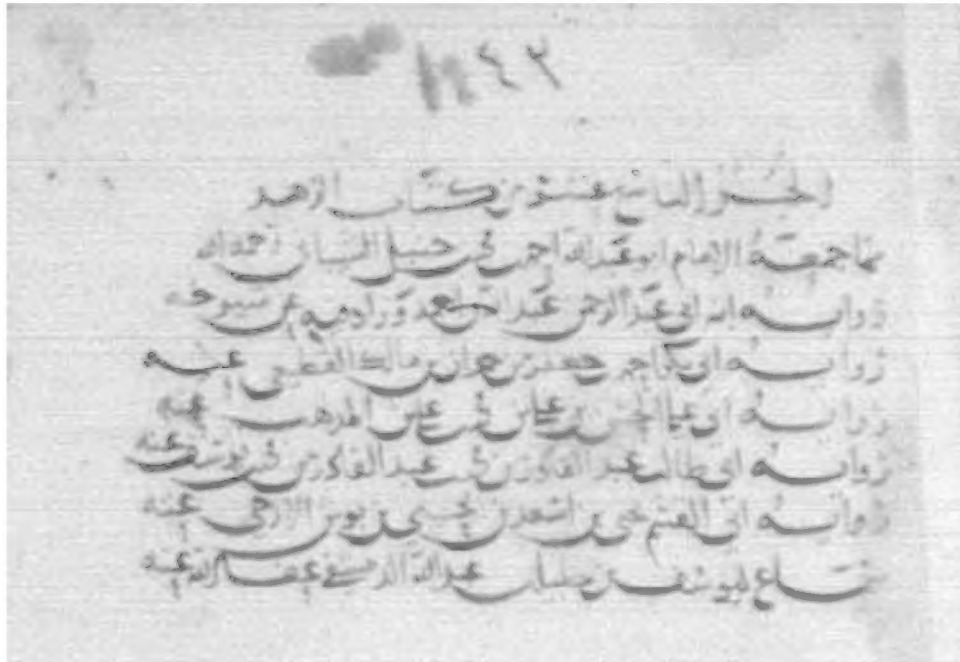 الجزء التاسع عشر من كتاب الزهد
مما جمعه الامام ابو عبد الله احمد بن محمد بن حنبل الشيباني رحمه الله
رواية ابنه ابي عبد الرحمن عبد الله
رواية ابي بكر احمد بن جعفر بن حمدان بن مالك القطيعي عنه
رواية ابي علي الحسن بن علي بن محمد بن علي بن المذهب عنه
رواية ابي طالب عبد القادر بن محمد بن عبد القادر بن محمد بن يوسف عنه
رواية ابي القسم يحيى بن اسعد بن يحيى بن بوش الازجي عنه
سماع ليوسف بن خليل بن عبد الله الدمشقي عفا الله عنه